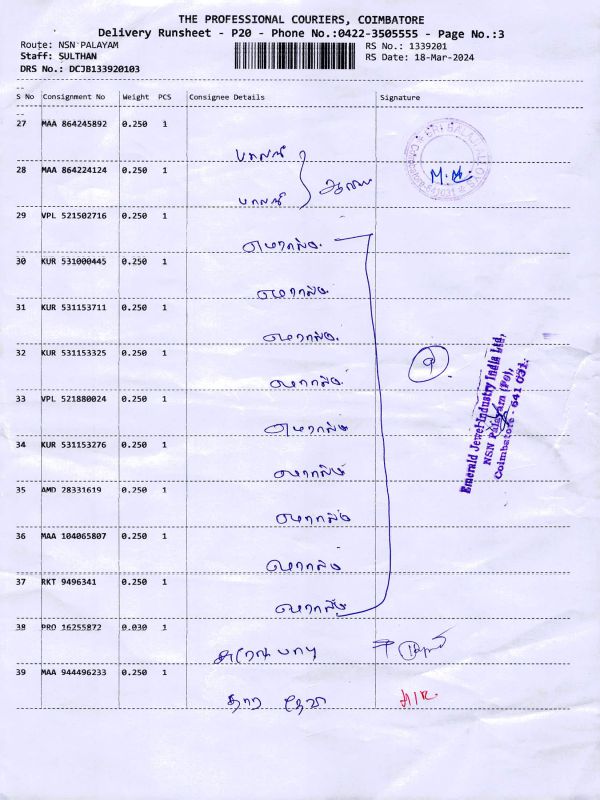 THE PROFESSIONAL COURIERS, COIMBATORE
Delivery Runsheet - P20 - Phone No.:0422-3505555 - Page No.:3
Route: NSN PALAYAM
RS No.: 1339201
Staff: SULTHAN
RS Date: 18-Mar-2024
DRS No.: DCJB133920103
S No Consignment No Weight PCS Consignee Details Signature
27 MAA 864245892 0.250 1
பாலாஜி
28 MAA 864224124 0.250 1
M.
பாலாஜி
29 VPL 521502716 0.250 1
எமரால்டு
30 KUR 531000445 0.250 1
எமரால்டு
31 KUR 531153711 0.250 1
எமரால்டு
32 KUR 531153325 0.250 1
9
எமரால்டு
33 VPL 521880024 0.250 1
எமரால்டு
34 KUR 531153276 0.250 1
எமரால்டு
35 AMD 28331619 0.250 1
எமரால்டு
36 MAA 104065807 0.250 1
எமரால்டு
37 RKT 9496341 0.250 1
எமரால்டு
38 PRO 16255872 0.030 1
பாபு
39 MAA 944496233 0.250 1
தேவி
Emerald Jewel Industry India Ltd,
NSN Palayam (Po),
Coimbatore - 641 031.